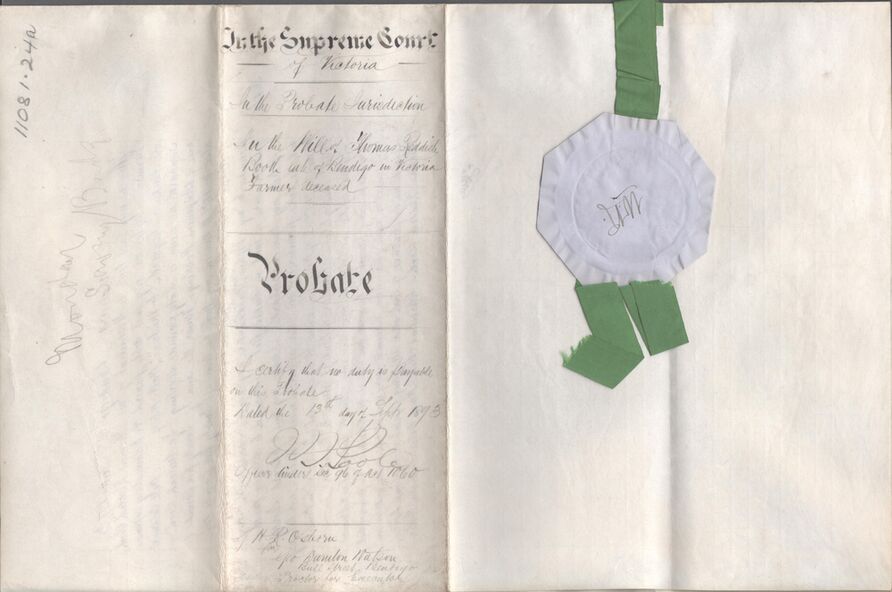 11081.24a
In the Supreme Court
of Victoria
In the Probate Jurisdiction
In the Will of Thomas Reddish
Booth late of Bendigo in Victoria
Farmer deceased
Probate
I certify that no duty is payable
on this Probate
Dated the 13th day of Sept 1893
Officer under sec 96 of Act 1060
H. R. Osborn
Watson
Bull Street Bendigo
Proctor for Executor